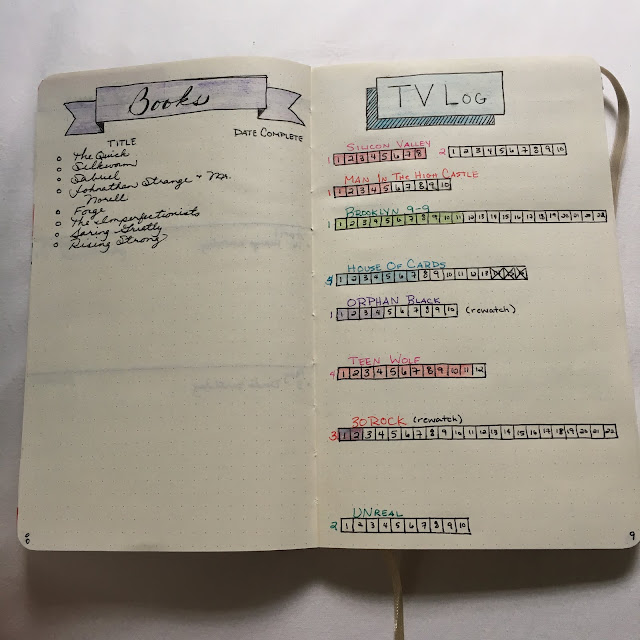 Books
TITLE
DATE COMPLETE
The Quick
Silkworm
Sabriel
Johnathan Strange + Mr.
Norell
Forge
The Imperfectionists
Daring Greatly
Rising Strong
8
TV LOG
SILICON VALLEY
1 1 2 3 4 5 6 7 8 2 1 2 3 4 5 6 7 8 9 10
MAN IN THE HIGH CASTLE
1 1 2 3 4 5 6 7 8 9 10
BROOKLYN 9-9
1 1 2 3 4 5 6 7 8 9 10 11 12 13 14 15 16 17 18 19 20 21 22
HOUSE OF CARDS
1 2 3 4 5 6 7 8 9 10 11 12 13
ORPHAN BLACK
1 1 2 3 4 5 6 7 8 9 10 (rewatch)
TEEN WOLF
4 1 2 3 4 5 6 7 8 9 10 11 12
30 ROCK (rewatch)
3 1 2 3 4 5 6 7 8 9 10 11 12 13 14 15 16 17 18 19 20 21 22
UNREAL
2 1 2 3 4 5 6 7 8 9 10
9